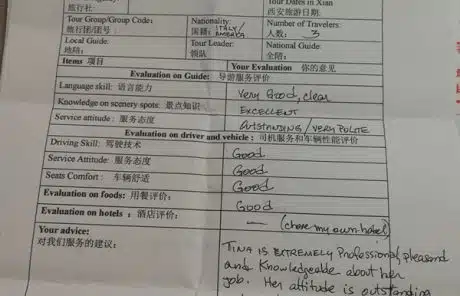 旅行社
Tour Dates in Xian
西安旅游日期
Tour Group/Group Code:
旅行团/团号
Nationality:
国籍: ITALY/
AMERICA
Number of Travelers:
人数: 3
Local Guide:
地陪:
Tour Leader:
领队
National Guide:
全陪:
Items 项目
Your Evaluation 你的意见
Evaluation on Guide: 导游服务评价
Language skill: 语言能力
Very Good, clear
Knowledge on scenery spots: 景点知识
EXCELLENT
Service attitude: 服务态度
OUTSTANDING / VERY POLITE
Evaluation on driver and vehicle: 司机服务和车辆性能评价
Driving Skill: 驾驶技术
Good
Service Attitude: 服务态度
Good
Seats Comfort: 车辆舒适
Good
Evaluation on foods: 用餐评价:
Good
Evaluation on hotels: 酒店评价:
— (chose my own hotel)
Your advice:
对我们服务的建议:
TINA IS EXTREMELY Professional, pleasand
and Knowledgeable about her
job. Her attitude is outstanding